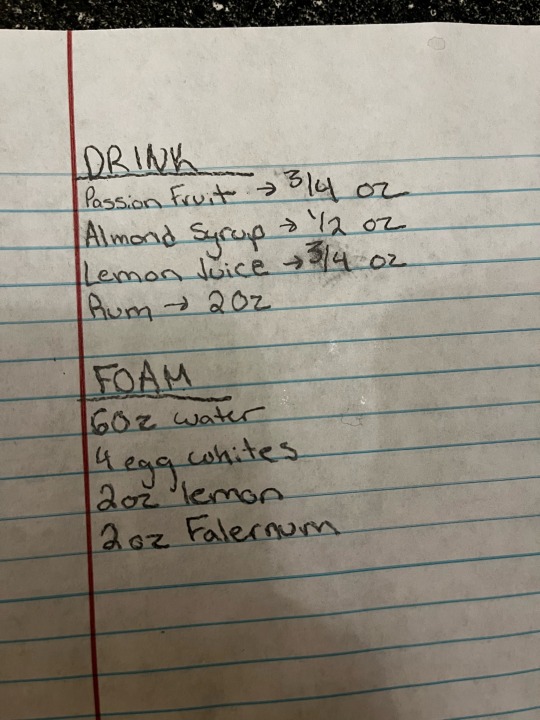 DRINK
Passion Fruit → 3/4 oz
Almond Syrup → 1/2 oz
Lemon Juice → 3/4 oz
Rum → 2oz
FOAM
6oz water
4 egg whites
2oz lemon
2oz Falernum